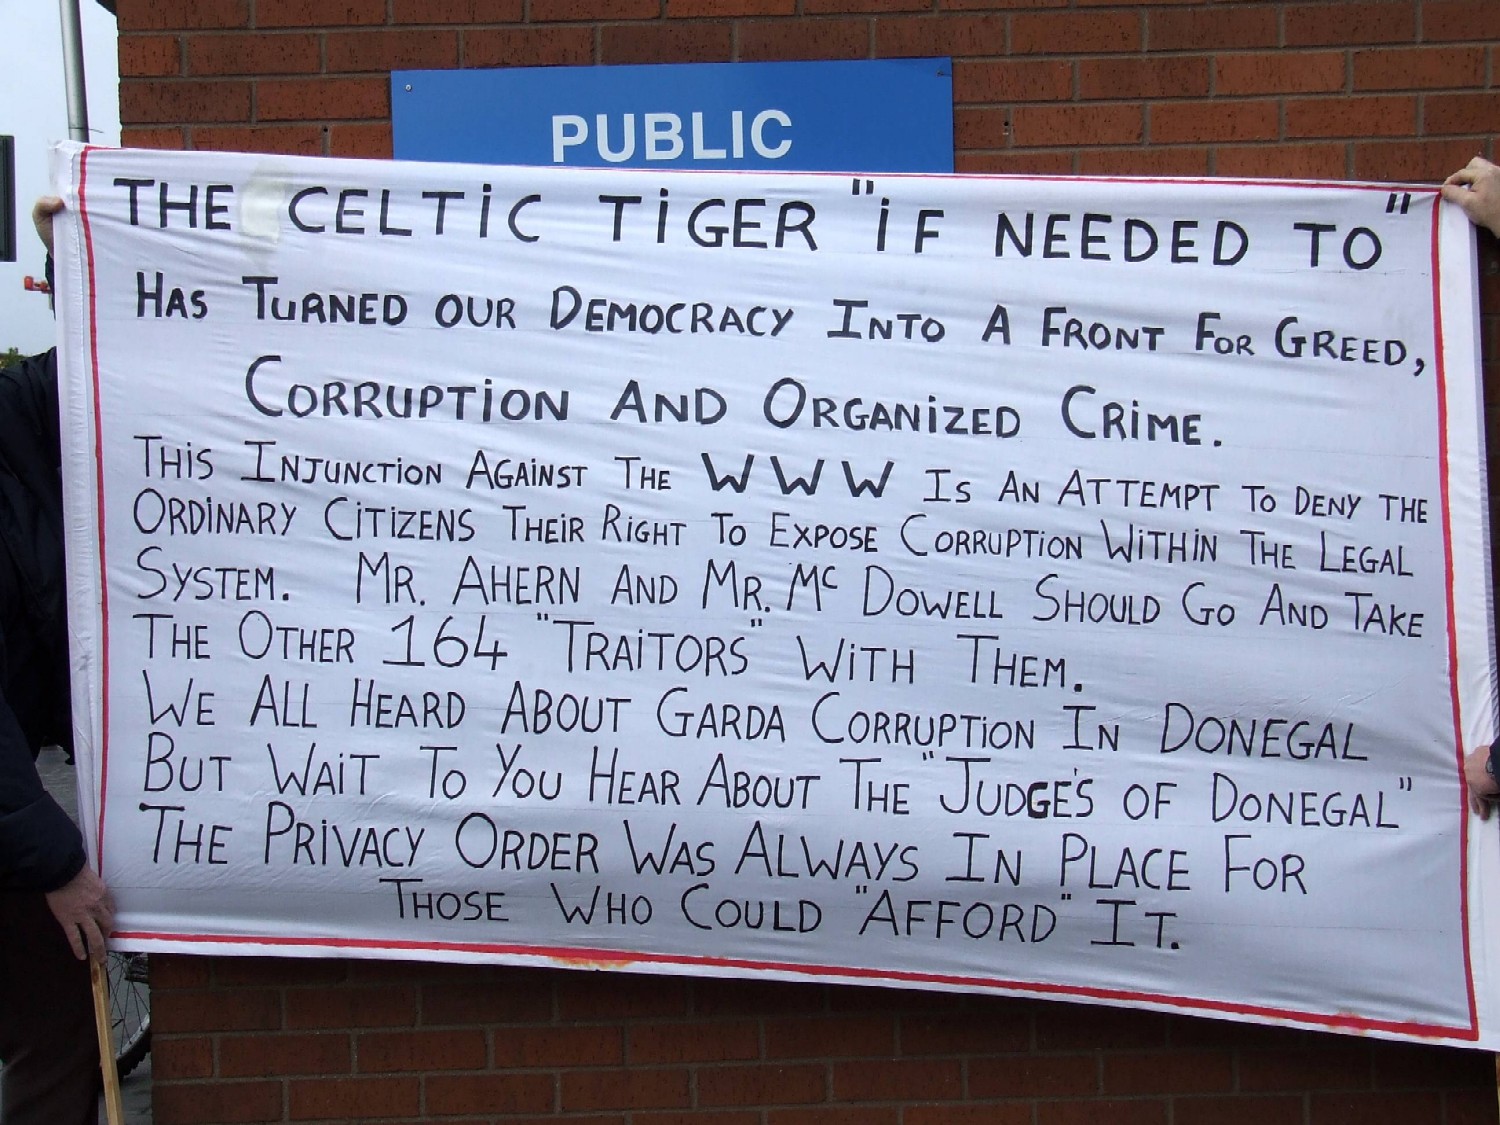 PUBLIC
THE CELTIC TIGER "IF NEEDED TO"
HAS TURNED OUR DEMOCRACY INTO A FRONT FOR GREED,
CORRUPTION AND ORGANIZED CRIME.
THIS INJUNCTION AGAINST THE WWW IS AN ATTEMPT TO DENY THE
ORDINARY CITIZENS THEIR RIGHT TO EXPOSE CORRUPTION WITHIN THE LEGAL
SYSTEM. MR. AHERN AND MR. MC DOWELL SHOULD GO AND TAKE
THE OTHER 164 "TRAITORS" WITH THEM.
WE ALL HEARD ABOUT GARDA CORRUPTION IN DONEGAL
BUT WAIT TO YOU HEAR ABOUT THE "JUDGE'S OF DONEGAL"
THE PRIVACY ORDER WAS ALWAYS IN PLACE FOR
THOSE WHO COULD "AFFORD" IT.